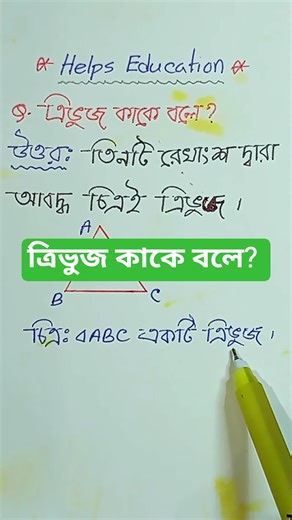 * Helps Education *
Q. ত্রিভুজ কাকে বলে?
উত্তর: তিনটি রেখাংশ দ্বারা
আবদ্ধ চিত্রই ত্রিভুজ।
A
ত্রিভুজ কাকে বলে?
B C
চিত্র: ΔABC একটি ত্রিভুজ।